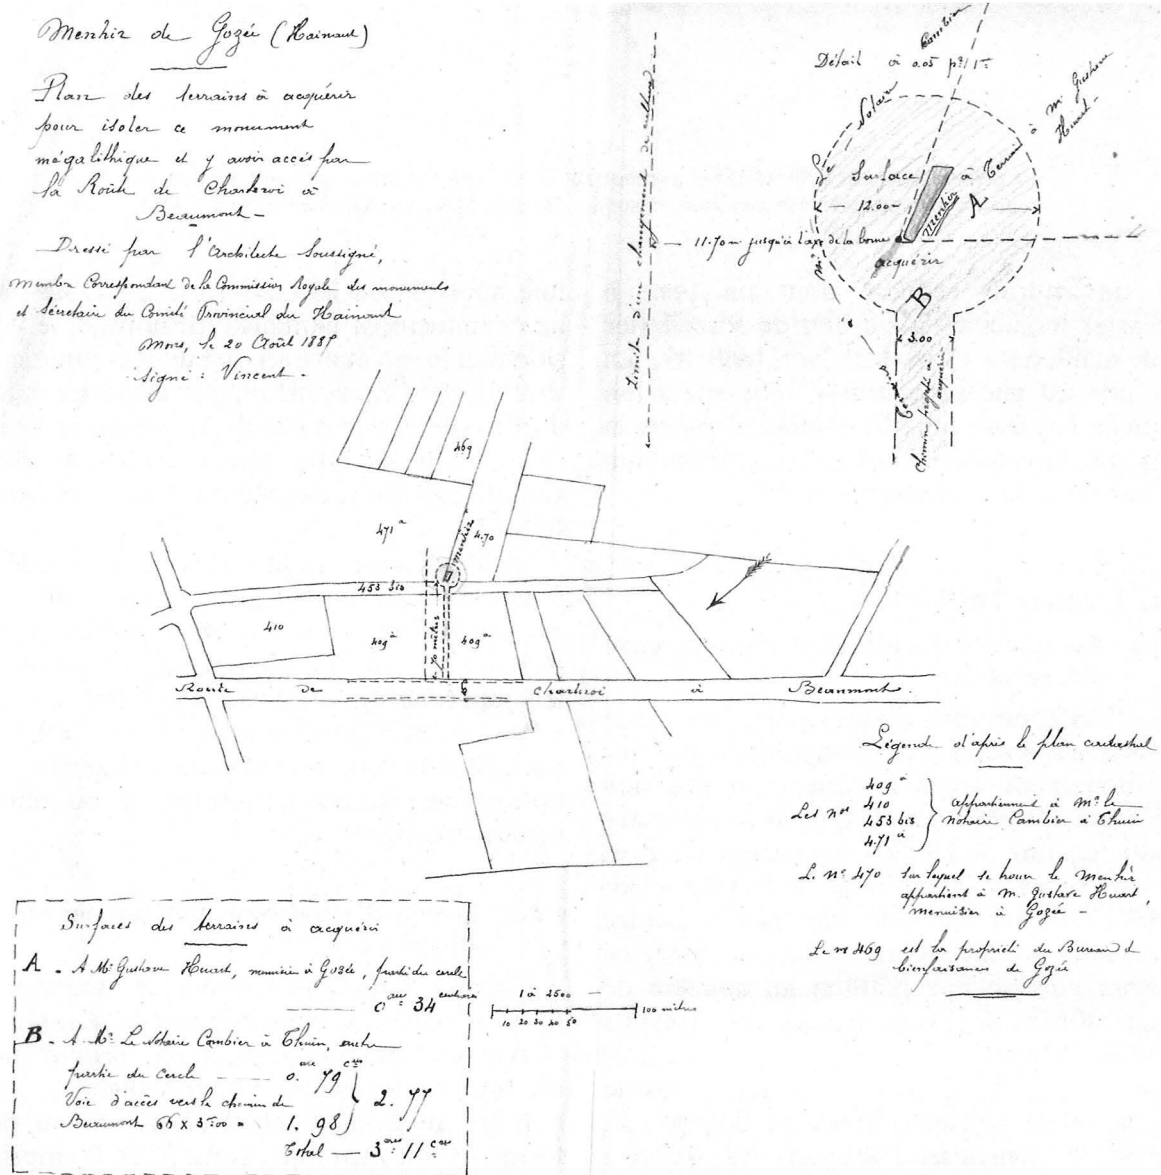 Menhir de Gozée (Hainaut)
Plan des terrains à acquérir
pour isoler ce monument
mégalithique et y avoir accès par
la Route de Charleroi à
Beaumont -
Dressé par l'Architecte Soussigné,
membre Correspondant de la Commission Royale des monuments
et Secrétaire du Comité Provincial du Hainaut
Mons, le 20 Août 188
Signé : Vincent -
Détail à 0.05 pr 1m
Notaire
Cambier
à M. Gustave
Huart -
Surface
à Terrain
12.00m
Menhir
A
11.70m jusqu'à l'axe de la borne
acquérir
B
3.00
Chemin projeté à
acquérir
Limite d'un changement de culture
469
471a
470
Menhir
453 bis
410
409a
409a
Route de Charleroi à Beaumont
Légende d'après le plan cadastral
Les nos
409a
410
453 bis
471a
appartiennent à Mr le
notaire Cambier à Thuin
Le no 470 sur lequel se trouve le Menhir
appartient à M. Gustave Huart,
menuisier à Gozée -
Le no 469 est la propriété du Bureau de
bienfaisance de Gozée
Surfaces des terrains à acquérir
A - A Mr Gustave Huart, menuisier à Gozée, partie du cercle
0 ares 34 centiares
B - A Mr Le Notaire Cambier à Thuin, autre
partie du Cercle 0. are 79 cres
Voie d'accès vers le chemin de
Beaumont 66 x 3m00 = 1. 98
2. 77
Total — 3 ares 11 cres
1 à 2500
10 20 30 40 50
100 mètres